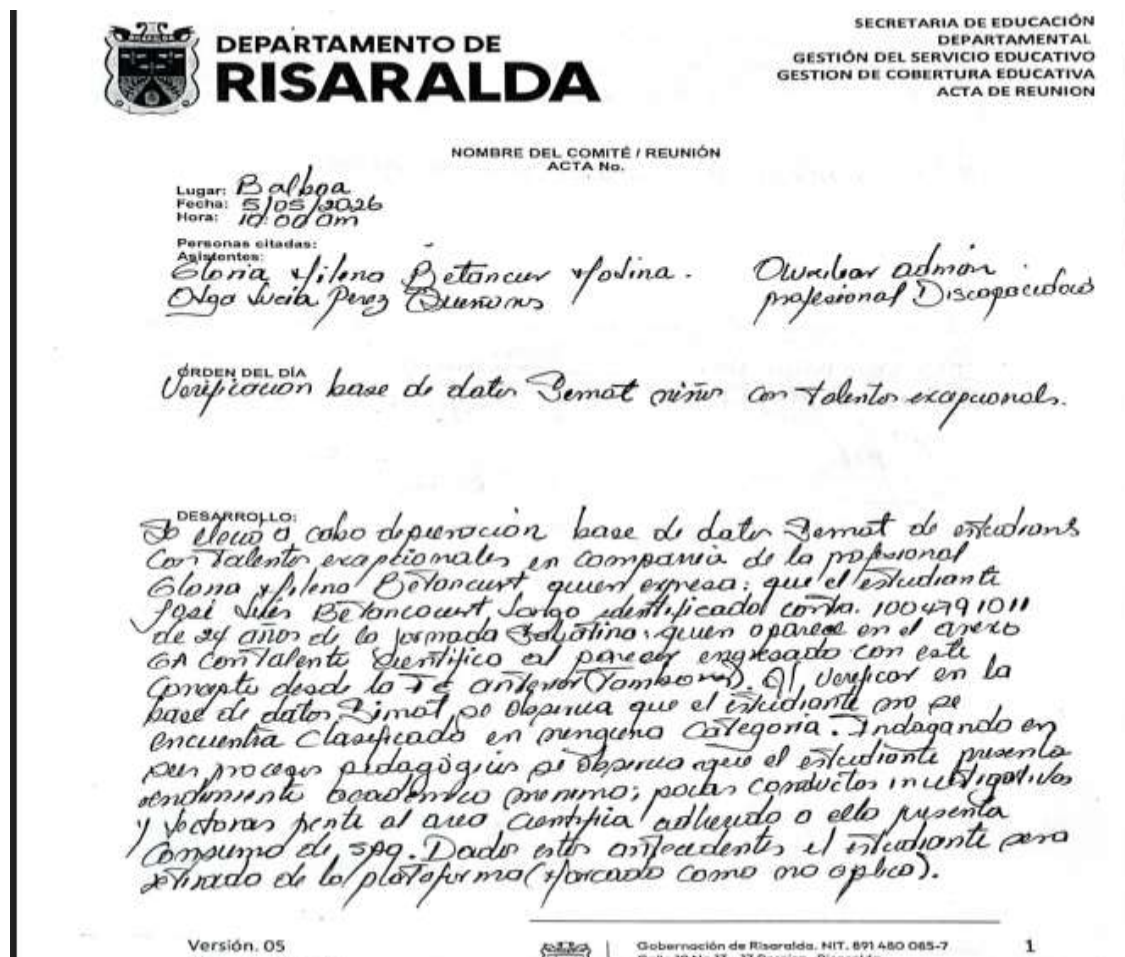 DEPARTAMENTO DE
RISARALDA
SECRETARIA DE EDUCACIÓN
DEPARTAMENTAL
GESTIÓN DEL SERVICIO EDUCATIVO
GESTION DE COBERTURA EDUCATIVA
ACTA DE REUNION
NOMBRE DEL COMITÉ / REUNIÓN
ACTA No.
Lugar: Balboa
Fecha: 5/05/2026
Hora: 10:00 am
Personas citadas:
Asistentes:
Gloria Milena Betancur Molina. Auxiliar admón.
Olga Lucia Perez profesional
ORDEN DEL DÍA
Verificacion base de datos Semat niños con talentos excepcionals.
DESARROLLO:
Se llevo a cabo depuración base de datos Semat de estudians
con talentos excepcionales en compania de la profesional
Gloria Milena Betancurt quien expresa: que el estudiante
José Luis Betancourt identificado con 1004791011
de 24 años de la jornada quien aparece en el anexo
6A con talento científico al parecer engresado con este
concepto desde la anterior Al verificar en la
base de datos Simat, se observa que el estudiante no se
encuentra clasificado en ninguna categoria. Indagando en
sus procesos pedagógicos se observa que el estudiante presenta
rendimiento académico minimo; pocas conductas investigativas
y lectoras frente al area cientifica adherido a ello presenta
consumo de SPA. Dados estos antecedentes el estudiante sera
retirado de la plataforma (Marcado como no aplica).
Versión. 05
Gobernación de Risaralda. NIT. 891 480 085-7
1